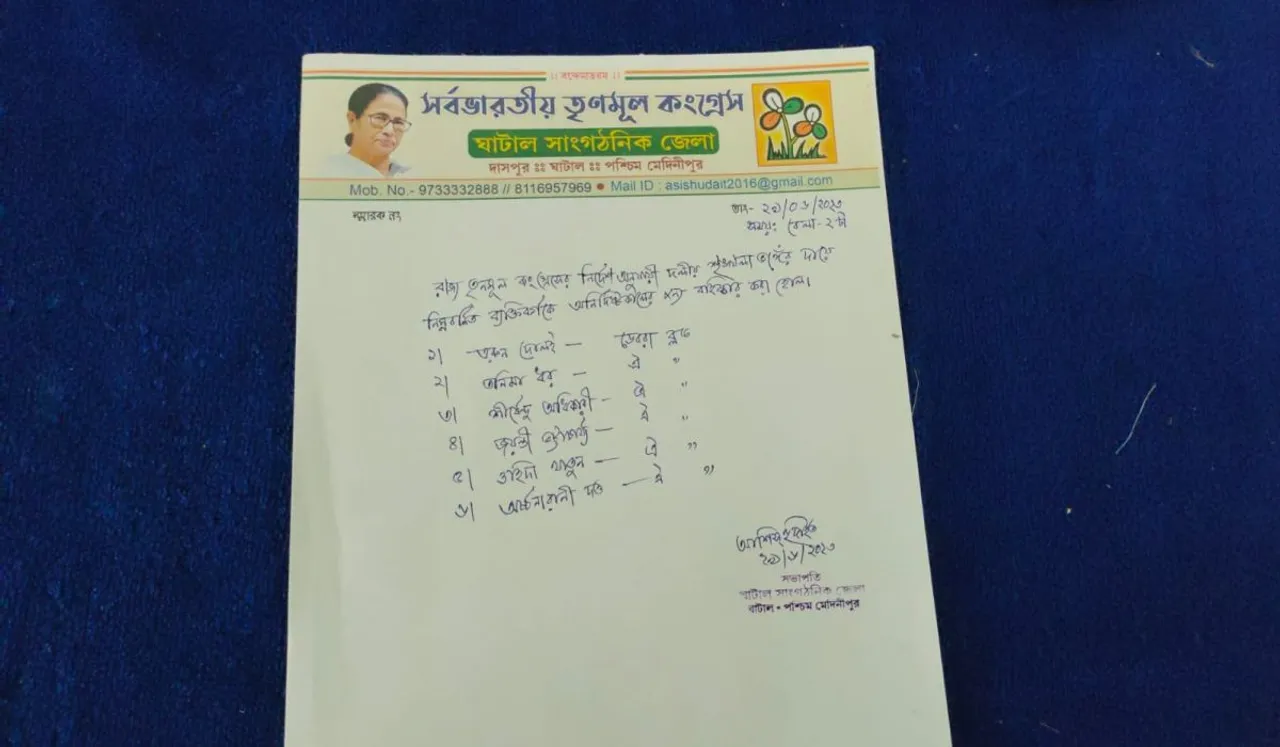 ।। বন্দেমাতরম ।।
সর্বভারতীয় তৃণমূল কংগ্রেস
ঘাটাল সাংগঠনিক জেলা
দাসপুর ঃঃ ঘাটাল ঃঃ পশ্চিম মেদিনীপুর
Mob. No.- 9733332888 // 8116957969 ● Mail ID : asishudait2016@gmail.com
স্মারক নং
তাং- ২৯/০৬/২০২৩
সময়: বেলা- ২টা
রাজ্য তৃনমূল কংগ্রেসের নির্দেশ অনুযায়ী দলীয় শৃঙ্খলা ভঙ্গের দায়ে
নিম্নবর্নিত ব্যক্তিবর্গকে অনির্দিষ্টকালের জন্য বহিষ্কার করা হোল।
১। দোলই — ডেবরা ব্লক
২। তনিমা ধর — ঐ "
৩। শীর্ষেন্দু অধিকারী — ঐ "
৪। জয়ন্তী — ঐ "
৫। খাতুন — ঐ "
৬। অর্চ্চনারানী দত্ত — ঐ "
আশিস হুদাইত
২৯/৬/২০২৩
সভাপতি
ঘাটাল সাংগঠনিক জেলা
ঘাটাল • পশ্চিম মেদিনীপুর